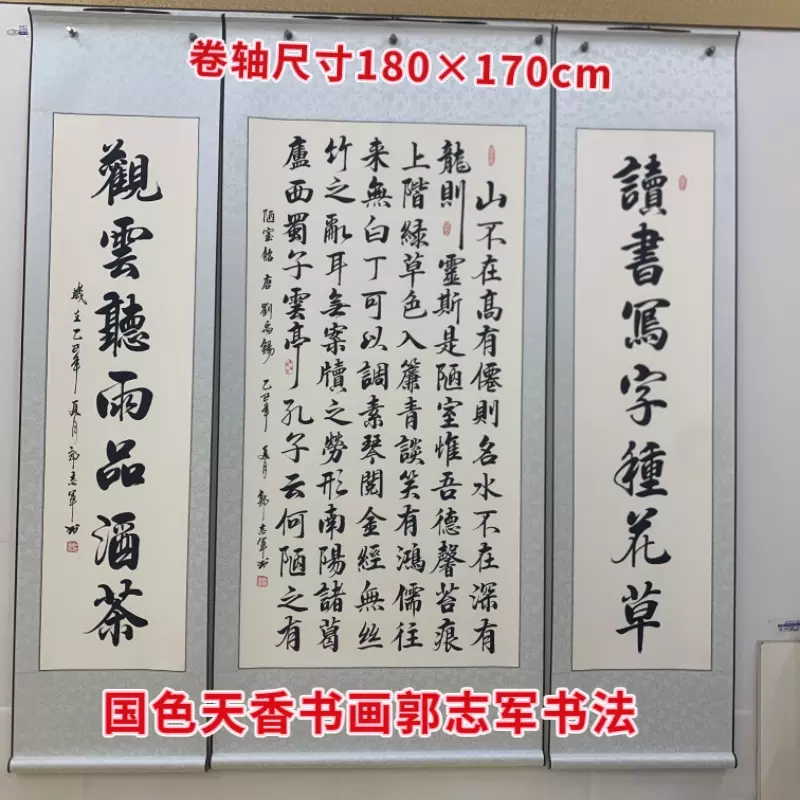 卷轴尺寸180×170cm
讀書寫字種花草
山不在高有僊則名水不在深有
龍則靈斯是陋室惟吾德馨苔痕
上階緑草色入簾青談笑有鴻儒往
来無白丁可以調素琴閱金經無丝
竹之亂耳無案牘之勞形南陽諸葛
廬西蜀子雲亭孔子云何陋之有
陋室銘 唐 劉禹錫 乙巳年 夏月 郭志軍书
觀雲聽雨品酒茶
歲在乙巳年夏月郭志軍书
国色天香书画郭志军书法